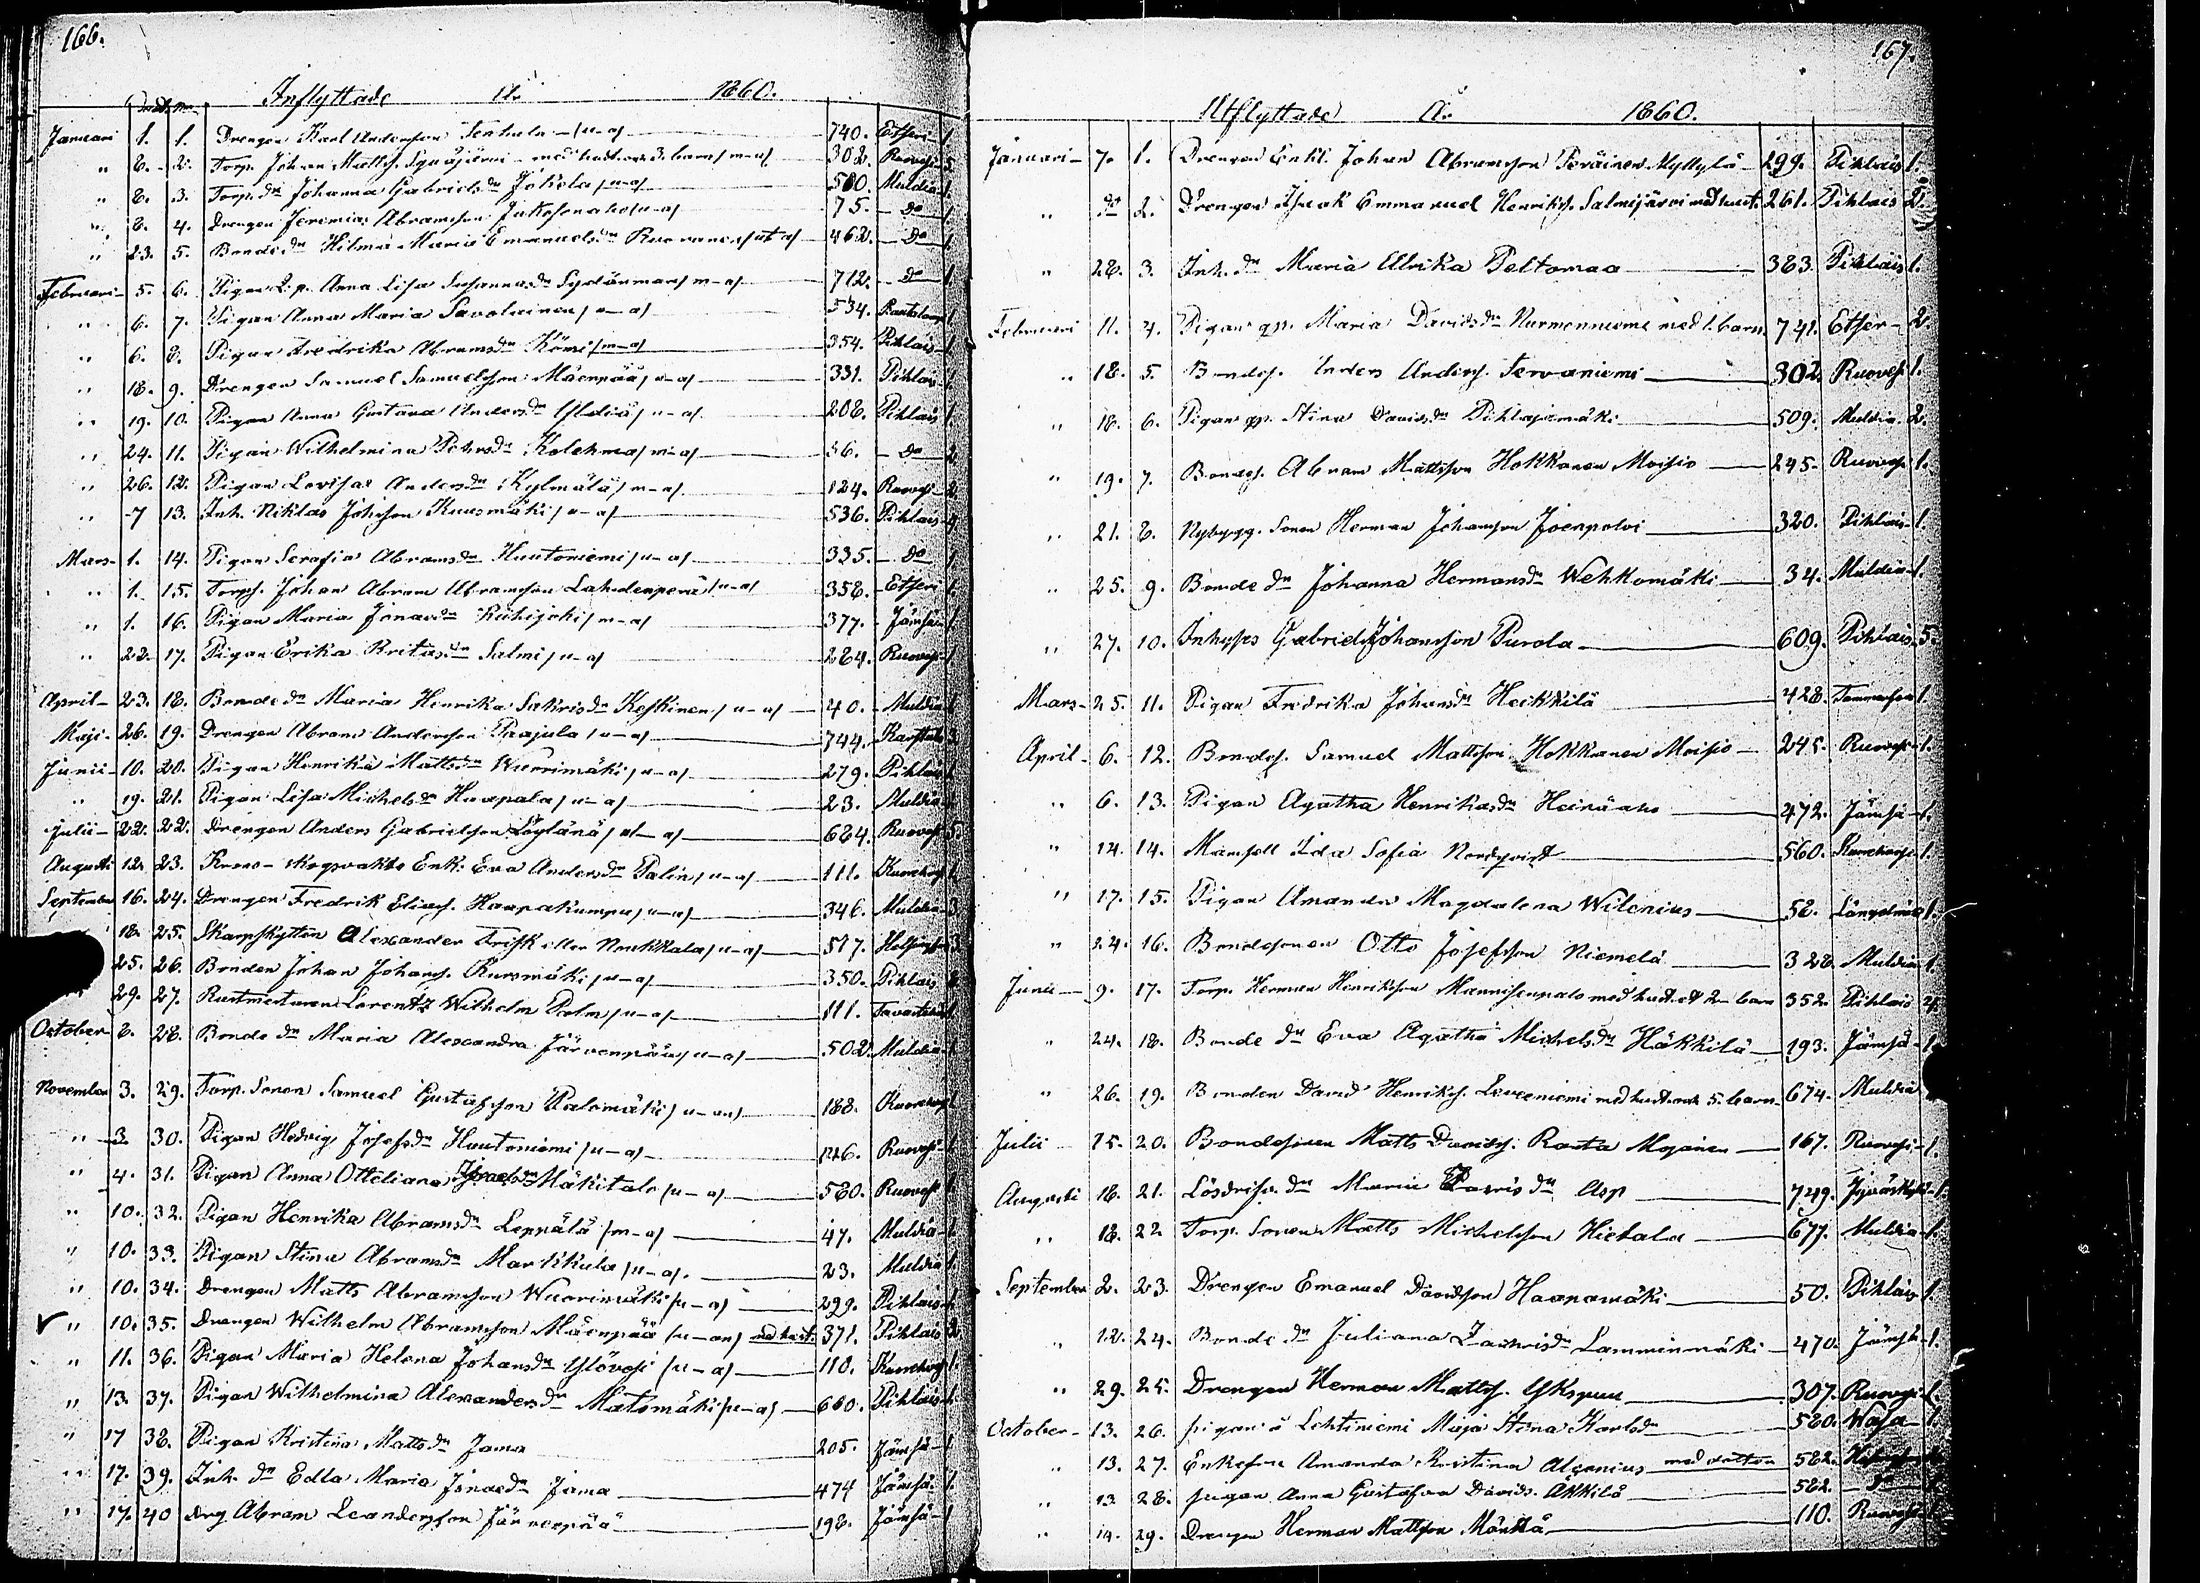 166.
Inflyttade År 1860.
Januari 1. 1. Drengen Karl Andersson /u-a/ 740. Etseri 1.
" 8. 2. Torp. Johan Matts. med hust. och 3. barn /m-a/ 302. Ruoves 5
" 8. 3. Torp. dn Johanna Gabrielsdn Jokela /u-a/ 500. Muldia 1.
" 8. 4. Drengen Jeremias Abramsson /u-a/ 75. Do 1
" 23. 5. Bonde dn Hilma Maria Emanuelsdn 462. Do 1.
Februari 5. 6. Pigan Anna Lisa Susannasdn /m-a/ 712. Do 1.
" 6. 7. Pigan Anna Maria Savolainen /u-a/ 534. 1
" 6. 8. Pigan Fredrika Abramsdn /m-a/ 354. Pihlais 1
" 18. 9. Drengen Samuel Samuelsson Mäenpää /u-a/ 331. Pihlais 1
" 19. 10. Pigan Anna Gustava Andersdn /u-a/ 208. Pihlais 1.
" 24. 11. Pigan Wilhelmina Kolehma /m-a/ 56. Do 2
" 26. 12. Pigan Lovisa Andersdn Kylmälä /m-a/ 124. Ruoves 2
" 7 13. Inh. Niklas Johsson Kuusmäki /u-a/ 536. Pihlais 4
Mars 1. 14. Pigan Serafia Abramsdn Huutoniemi /u-a/ 335. Do 1
" 1. 15. Torps. Johan Abram Abramsson Lahdenperä /u-a/ 358. Etseri 1.
" 1. 16. Pigan Maria Jonasdn /m-a/ 377. Jämsä 1
" 22. 17. Pigan Erika Kritasdn Salmi /u-a/ 284. Ruoves 1.
April 23. 18. Bonde dn Maria Henrika Sakrisdn Keskinen /u-a/ 40. Muldia 1
Maji 26. 19. Drengen Abram Andersson Paajula /u-a/ 744. Karstula 3
Junii 10. 20. Pigan Henrika Mattsdn Wuorimäki /u-a/ 279. Pihlais 1
" 19. 21. Pigan Lisa Michelsdn Haapala /u-a/ 23. Muldia
Julii 22. 22. Drengen Anders Gabrielsson 684. Ruoves 5.
Augusti 12. 23. Krono-skogvakts Enk. Eva Andersdn Palin /u-a/ 111. Kuorehv 1.
September 16. 24. Drengen Fredrik Eliass. Haapakumpu /u-a/ 346. Muldia 3
18. 25. Skarpskytten Alexander Frisk eller Nonkkala /u-a/ 517. Helsingf 3
25. 26. Bonden Johan Johans. Kuusmäki /u-a/ 350. Pihlais
29. 27. Rustmästaren Lorentz Wilhelm Palm /u-a/ 111. Tavastehus
October 8. 28. Bonde dn Maria Alexandra Järvenpää /u-a/ 502. Muldia 1.
November 3. 29. Torp. Sonen Samuel Gustafsson Palomäki /u-an/ 188. Kuorehv 1
" 3. 30. Pigan Hedvig Josefsdn Hautoniemi /u-a/ 126. Ruoves 1.
" 4. 31. Pigan Anna Ottiliana Israelsdn Mäkitalo /u-a/ 580. Ruoves 1
" 10. 32. Pigan Henrika Abramsdn Leppälä /m-a/ 47. Muldia 1
" 10. 33. Pigan Stina Abramsdn Markkula /u-a/. 23. Muldia 1.
" 10. 34. Drengen Matts Abramsson Wuorimäki /u-a/ 299. Pihlais 1
✓ " 10. 35. Drengen Wilhelm Abramsson Mäenpää /u-an/ med hust. 371. Pihlais 2.
" 11. 36. Pigan Maria Helena Johansdn Ylövesi /u-a/ 110. Kuorehv 1.
" 13. 37. Pigan Wilhelmina Alexandersdn Matomäki /u-a/ 660. Pihlais 1.
" 17 38. Pigan Kristina Mattsdn Jama 205. Jämsä 1
" 17. 39. Inh. dn Edla Maria Jonasdn Jama 474 Jämsä 1.
" 17. 40 drg Abram Leandersson Järvenpää 198. Jämsä 1
167.
Utflyttade År 1860.
Januari 7. 1. Drengen Enkl. Johan Abramsson Peräinen Myllylä 299. Pihlais 1.
" do 2. Drengen Isaak Emmanuel Henriks. Salmijärvi med hust. 261. Pihlais 2.
" 28. 3. Inh. dn Maria Ulrika Peltomaa 383. Pihlais 1.
Februari 11. 4. Pigan Maria Davidsdn Nurmenniemi med 1. barn 741. Etser 2
" 18. 5. Bondes. Anders Anderss. Tervaniemi 302. Ruoves 1.
" 18. 6. Pigan Stina Davidsdn Pihlajamäki 509. Muldia 2.
" 19. 7. Bondes. Abram Mattsson Hokkanen Moisio 245. Ruoves 1.
" 21. 8. Nybygg. Sonen Herman Johansson Joenpolvi 320. Pihlais 1.
" 25. 9. Bonde dn Johanna Hermansdn Wehkomäki 34. Muldia 1.
" 27. 10. Inhyses Gabriel Johansson Purola 609. Pihlais 5.
Mars 25. 11. Pigan Fredrika Johansdn Heikkilä 428. Tammerfors 1
April 6. 12. Bondes. Samuel Mattsson Hokkanen Moisio 245. Ruoves 1.
" 6. 13. Pigan Agatha Henriksdn Heinäaho 472. Jämsä 1.
" 14. 14. Mamsell Ida Sofia Nordqvist 560. Kuorehv 1.
" 17. 15. Pigan Amanda Magdalena Wilenius 58. Längelmäki 1.
" 24. 16. Bondesonen Otto Josefsson Niemelä 328. Muldia 1.
Junii 9. 17. Torp. Herman Henriksson Mannisenpalo med hust. et 2 barn 352. Pihlais 4
" 24. 18. Bonde dn Eva Agatha Michelsdn Häkkilä 193. Jämsä 1
" 26. 19. Bonden David Henriks. Leveeniemi med hust. och 5. barn 674. Muldia
Julii 15. 20. Bondesonen Matts Davids. Rasta Mojanen 167. Ruoves 1.
Augusti 18. 21. Lösdrif. dn Maria dn Asp 749. Jyväskylä 1.
" 18. 22 Torp. Sonen Matts Michelsson Hietala 677. Muldia 1.
September 2. 23. Drengen Emanuel Davidsson Haapamäki 50. Pihlais 1.
" 12. 24. Bonde dn Juliana Zachrisdn Lamminmäki 470. Jämsä 1.
" 29. 25. Drengen Herman Matts. Ykspuu 307. Ruoves 1.
October 13. 26. pigan å Lehtiniemi Maja Stina Karlsdn 580. Wasa 1.
" 13. 27. Enkefru Amanda Kristina Alcenius med dotter 582.
" 13 28. pigan Anna Gustafva Davids. Äkkilä 582. Do
" 14. 29. Drengen Herman Mattsson Mänttä 110. Ruoves 1.